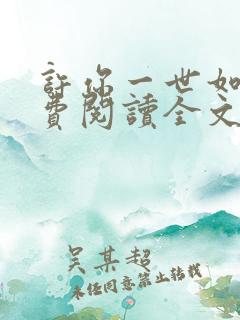 許你一世如
費閱讀全文
吴某超
未经同意禁止转载